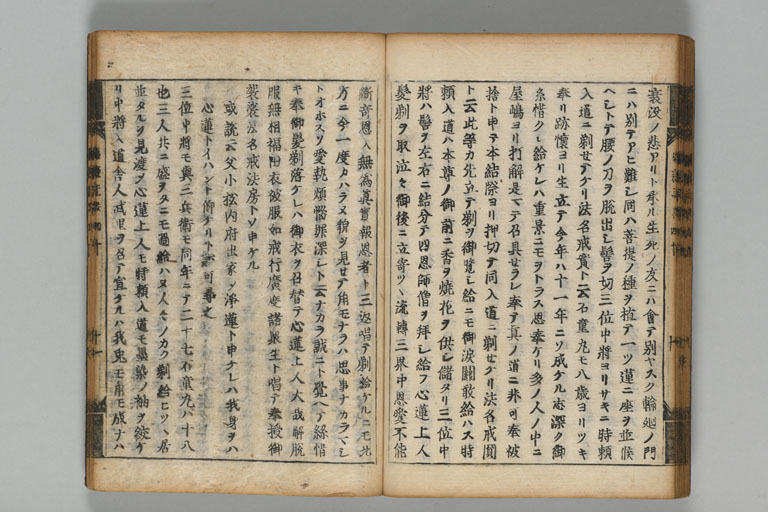 衰没ノ悲アリト承ル生死ノ友ニハ會テ別ヤスク輪廻ノ門
ニハ別テアヒ難シ同ハ菩提ノ種ヲ植テ一ツ蓮ニ座ヲ並候
ヘシトテ腰ノ刀ヲ脱出シ髻ヲ切三位中將ヨリサキニ時頼
入道ニ剃セテケリ法名戒實ト云石童丸モ八歳ヨリツキ
奉リ跡懐ヨリ生立テ今年ハ十一年ニソ成ケル志深ク御
糸惜クシ給ケレハ重景ニモヲトラス思奉ケリ多ノ人ノ中ニ
屋嶋ヨリ打解是マテ召具セラレ奉テ真ノ道ニ非可奉被
捨ト申テ本結際ヨリ押切テ同入道ニ剃セケリ法名戒圓
ト云此等カ先立テ剃ツ御覧シ給ニモ御涙關敢給ハス時
頼入道ハ本尊ノ御前ニ香ヲ焼花ヲ供シ儲タリ三位中
將ハ髻ヲ左右ニ結分テ四恩師僧ヲ拝シ給フ心蓮上人
髪剃ヲ取泣々御後ニ立寄ツヽ流轉三界中恩愛不能
断奇恩入無為真實報恩者ト三返唱テ剃給ケルニモ北
方ニ今一度カハラヌ貌ヲ見セテ角モナラハ思事ナカラマシ
トオホスソ愛執煩惱罪深シト云ナカラ誠ニト覚ヘテ糸惜
キ奉御髪剃落ケレハ御衣ヲ召替テ心蓮上人大哉解脱
服無相福田衣被服如戒行廣度諸衆生ト唱テ奉授御
袈裟法名戒法房トソ申ケル
或説云父小松内府出家ノ浄蓮ト申ケレハ我身ヲハ
心蓮トイハント仰ケリト云可尋之
三位中將モ與三兵衛モ同年ニテ二十七石童丸ハ十八
也三人共ニ盛ヲタニモ過給ハヌ人々ノカク剃給ヒツヽ居
並タルヲ見渡テ心蓮上人モ時頼入道モ墨染ノ袖ヲ絞ケ
リ中將入道舎人武里ヲ召テ宣ケルハ我兎モ角モ成ナハ